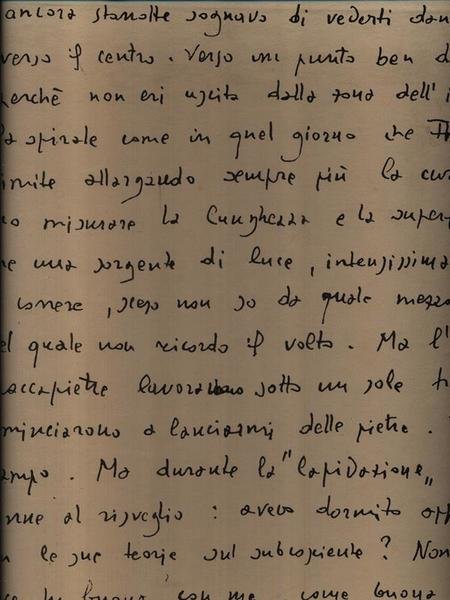 ancora stanotte sognavo di vederti dan
verso il centro. Verso un punto ben d
perchè non eri uscita dalla zona dell' i
la spirale come in quel giorno che
imite allargando sempre più la cur
misurare la lunghezza e la super
una sorgente di luce, intensissima
correre, sceso non so da quale mezzo
el quale non ricordo il volto. Ma l'
accapietre lavoravano sotto un sole
minciarono a lanciarmi delle pietre.
ampo. Ma durante la "lapidazione"
nne al risveglio: avevo dormito
le sue teorie sul subcosciente? Non
buono con me, come buona